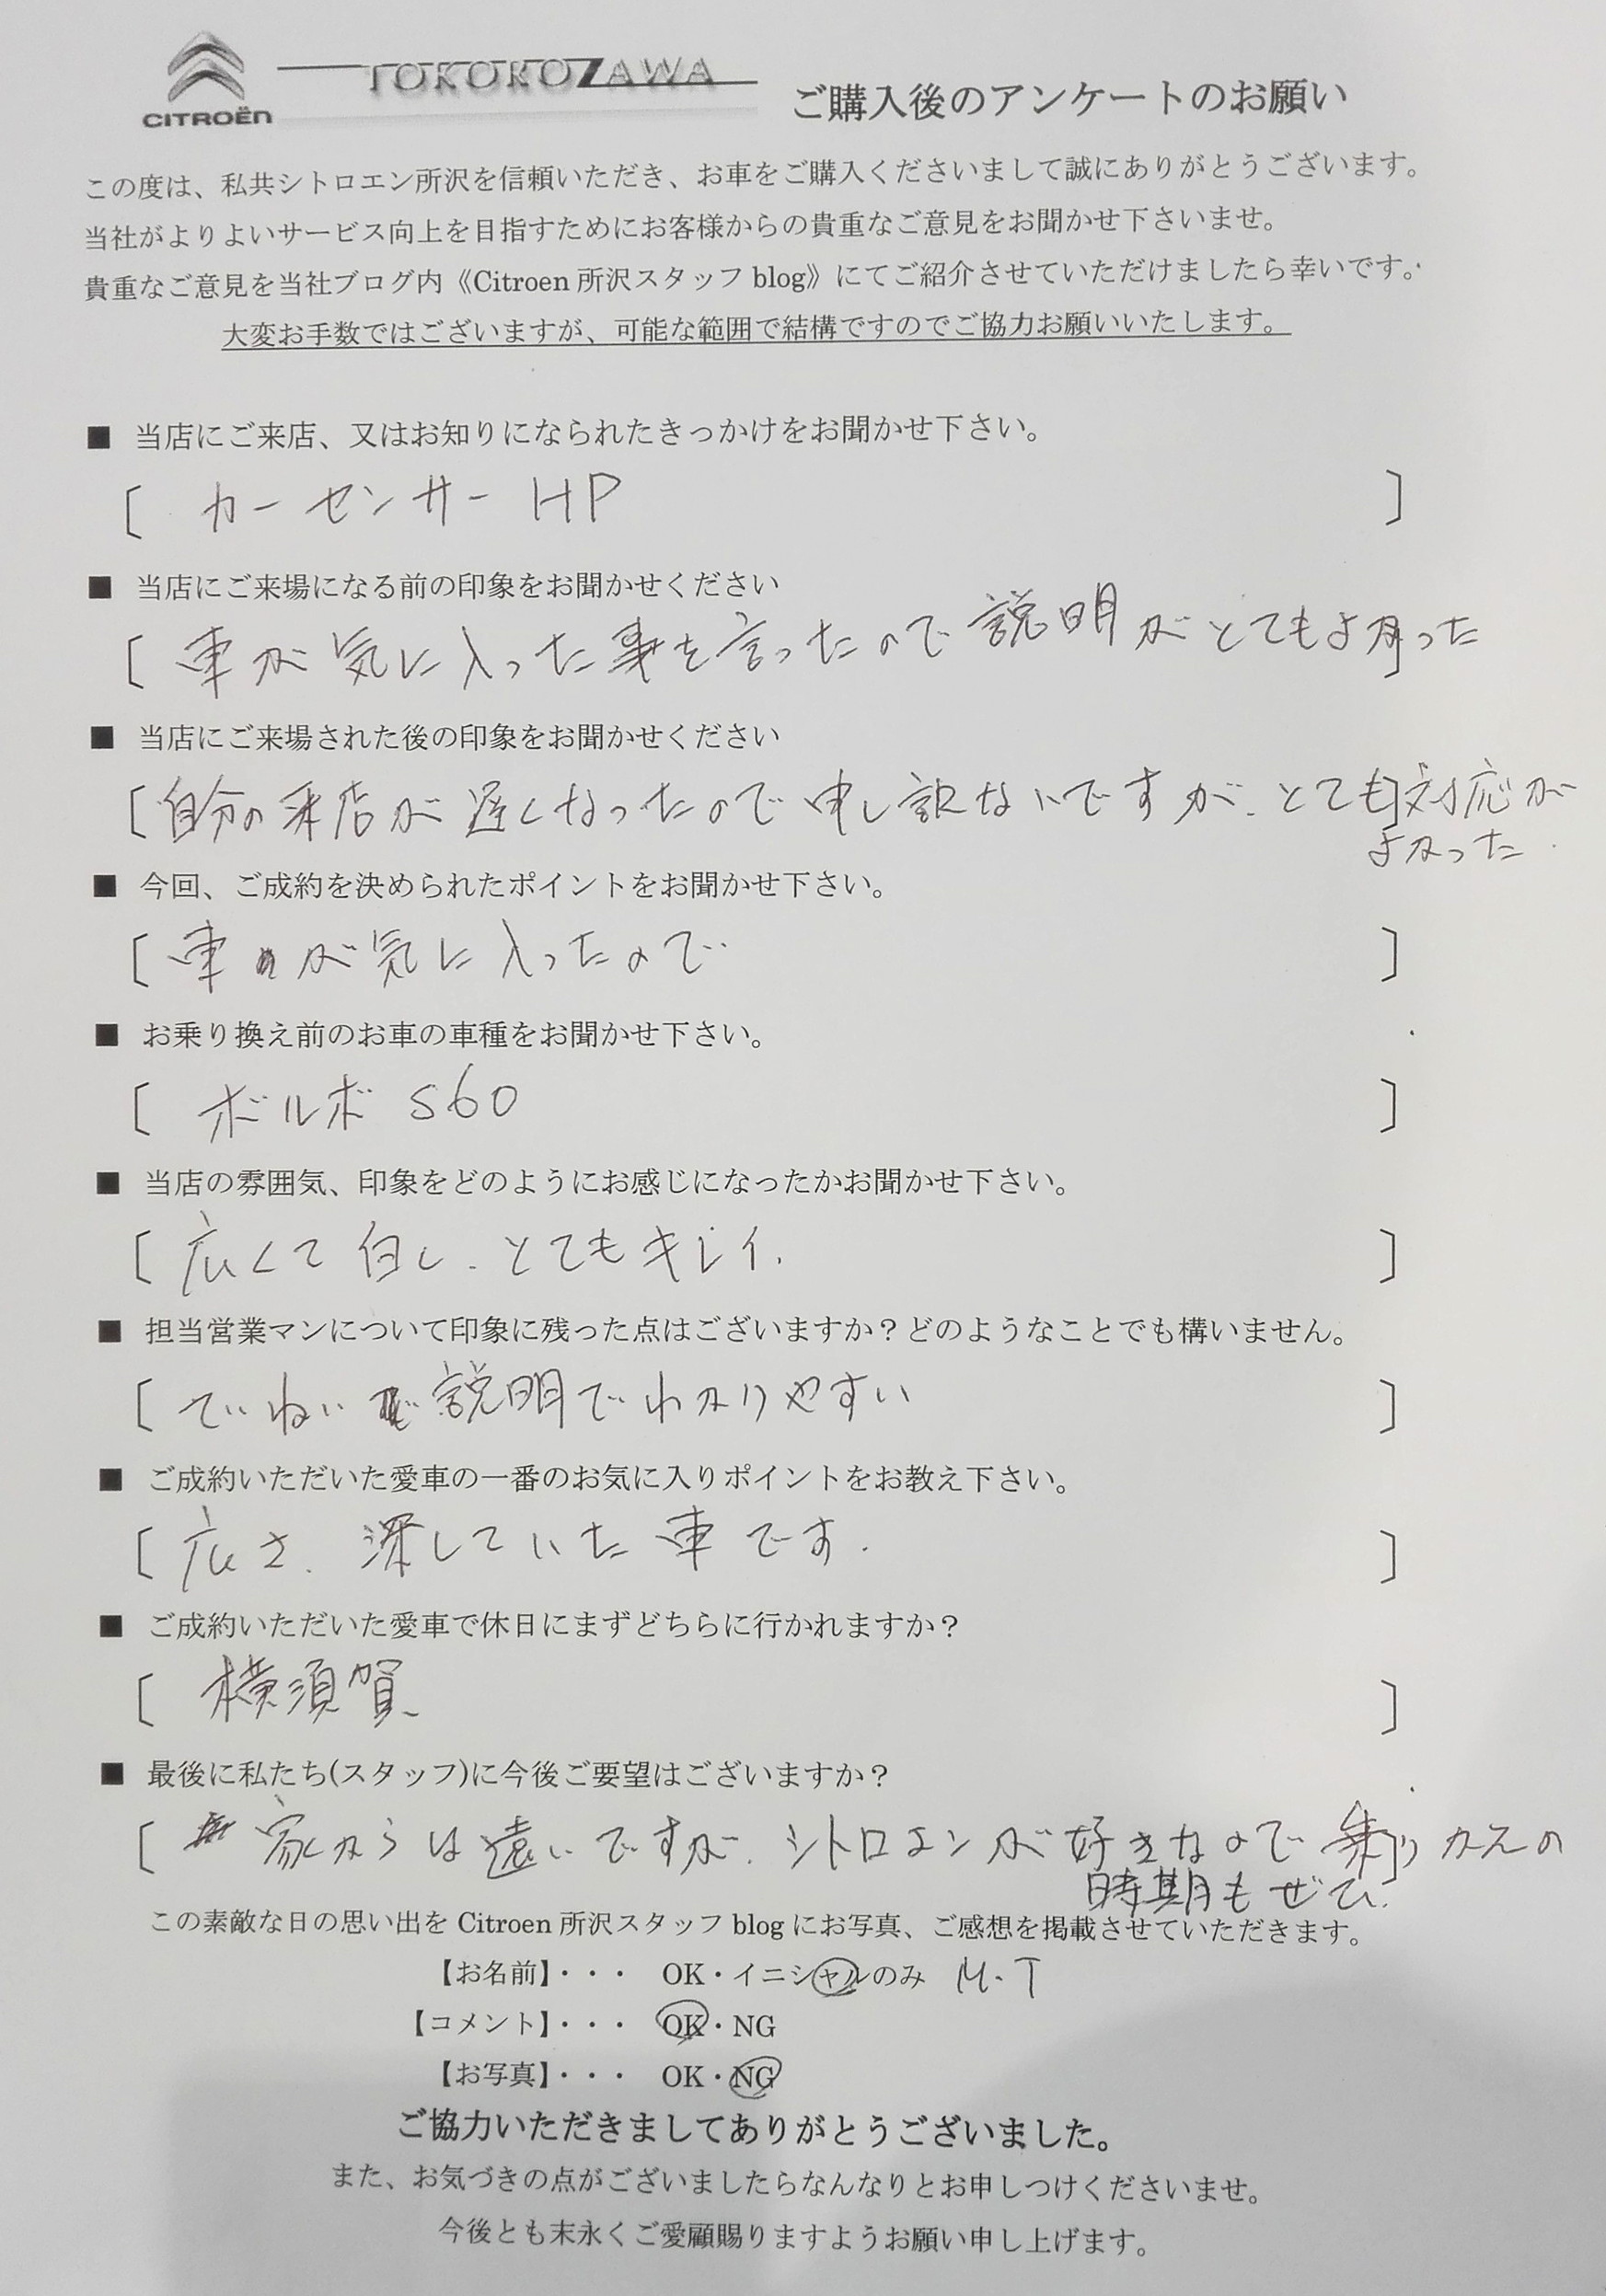 CITROËN
TOKOROZAWA
ご購入後のアンケートのお願い
この度は、私共シトロエン所沢を信頼いただき、お車をご購入くださいまして誠にありがとうございます。
当社がよりよいサービス向上を目指すためにお客様からの貴重なご意見をお聞かせ下さいませ。
貴重なご意見を当社ブログ内《Citroen 所沢スタッフ blog》にてご紹介させていただけましたら幸いです。
大変お手数ではございますが、可能な範囲で結構ですのでご協力お願いいたします。
■ 当店にご来店、又はお知りになられたきっかけをお聞かせ下さい。
[ カーセンサー HP ]
■ 当店にご来場になる前の印象をお聞かせください
[ 車が気に入った事を言ったので説明がとてもよかった ]
■ 当店にご来場された後の印象をお聞かせください
[ 自分の来店が遅くなったので申し訳ないですが、とても対応が ]
よかった
■ 今回、ご成約を決められたポイントをお聞かせ下さい。
[ 車が気に入ったので ]
■ お乗り換え前のお車の車種をお聞かせ下さい。
[ ボルボ S60 ]
■ 当店の雰囲気、印象をどのようにお感じになったかお聞かせ下さい。
[ 広くて白し、とてもキレイ. ]
■ 担当営業マンについて印象に残った点はございますか？どのようなことでも構いません。
[ ていねい 説明でわかりやすい ]
■ ご成約いただいた愛車の一番のお気に入りポイントをお教え下さい。
[ 広さ、深していた車です. ]
■ ご成約いただいた愛車で休日にまずどちらに行かれますか？
[ 横須賀 ]
■ 最後に私たち(スタッフ)に今後ご要望はございますか？
[ 家からは遠いですが、シトロエンが好きなので乗りかえの ]
時期もぜひ.
この素敵な日の思い出を Citroen 所沢スタッフ blog にお写真、ご感想を掲載させていただきます。
【お名前】・・・ OK・イニシャルのみ M.T
【コメント】・・・ OK・NG
【お写真】・・・ OK・NG
ご協力いただきましてありがとうございました。
また、お気づきの点がございましたらなんなりとお申しつけくださいませ。
今後とも末永くご愛顧賜りますようお願い申し上げます。